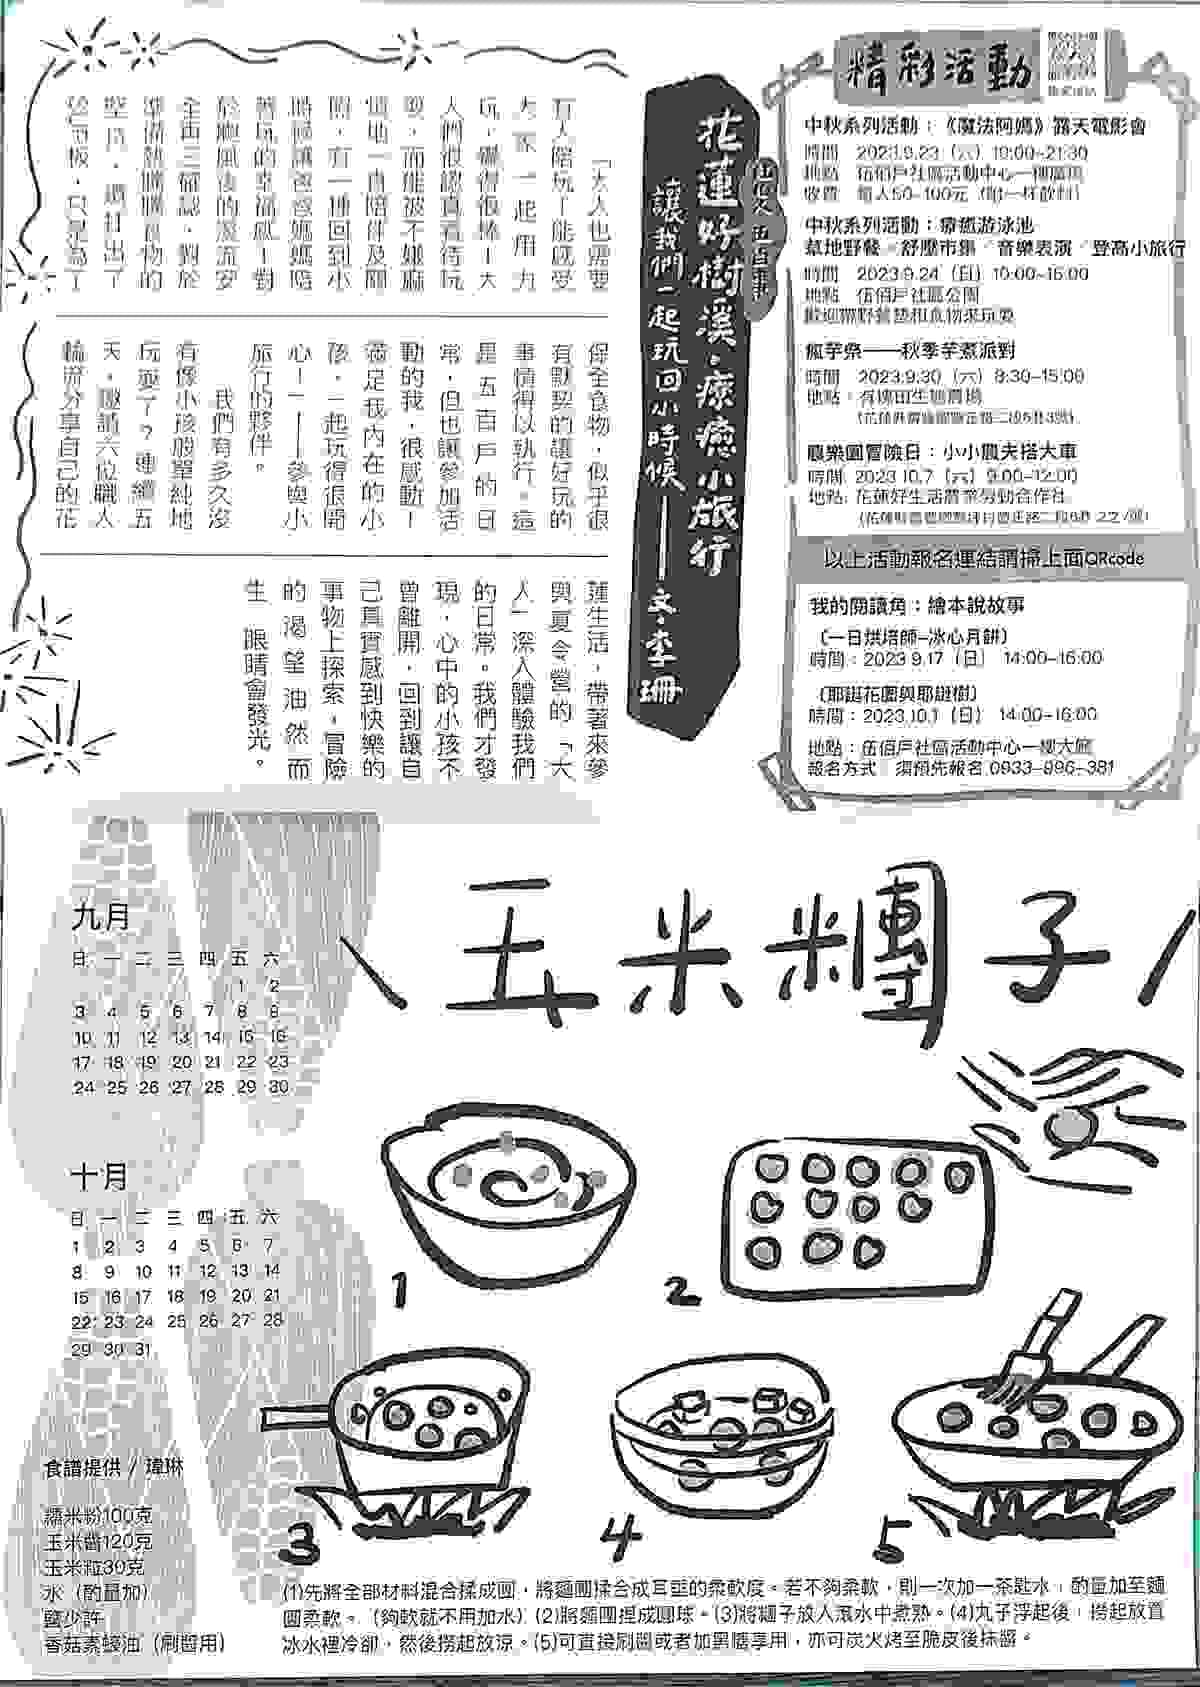 精彩活動
中秋系列活動：《魔法阿媽》露天電影會
時間　2023.9.23（六）19:00-21:30
地點　伍佰戶社區活動中心一樓廣場
收費　每人50-100元（附一杯飲料）
中秋系列活動：療癒游泳池
草地野餐／舒壓市集／音樂表演／登高小旅行
時間　2023.9.24（日）10:00-15:00
地點　伍佰戶社區公園
歡迎帶野餐墊和食物來玩耍
瘋芋祭——秋季芋煮派對
時間　2023.9.30（六）8:30-15:00
地點：有機田生態農場
農樂園冒險日：小小農夫搭大車
時間: 2023.10.7（六）9:00-12:00
地點: 花蓮好生活農業勞動合作社
以上活動報名連結請掃上面QRcode
我的閱讀角：繪本說故事
〔一日烘培師-冰心月餅〕
時間：2023.9.17（日） 14:00-16:00
〔耶誕花圈與耶誕樹〕
時間：2023.10.1（日） 14:00-16:00
地點：伍佰戶社區活動中心一樓大廳
報名方式：須預先報名 0933-996-381
花蓮好樹溪．療癒小旅行
讓我們一起玩回小時候——文．李珊
「大人也需要
有人陪玩！能感受
大家一起用力
玩，覺得很棒！大
人們很認真看待玩
耍，而能被不嫌麻
煩地一直陪伴及關
照，有一種回到小
時候讓爸爸媽媽陪
著玩的幸福感！對
於颱風後的溪流安
全再三確認，對於
準備熱騰騰食物的
堅持，網社出了
於砧板，只是為了
保全食物，似乎很
有默契的讓好玩的
事情得以執行。這
是五百戶的日
常，但也讓參加活
動的我，很感動！
滿足我內在的小
孩，一起玩得很開
心！——參與小
旅行的夥伴。
我們有多久沒
有像小孩般單純地
玩耍了？連續五
天，邀請六位職人
輪流分享自己的花
蓮生活，帶著來參
與夏令營的「大
人」深入體驗我們
的日常。我們才發
現，心中的小孩不
曾離開，回到讓自
己真實感到快樂的
事物上探索，冒險
的渴望油然而
生，眼睛會發光。
玉米糰子
九月
日 一 二 三 四 五 六
1 2
3 4 5 6 7 8 9
10 11 12 13 14 15 16
17 18 19 20 21 22 23
24 25 26 27 28 29 30
十月
日 一 二 三 四 五 六
1 2 3 4 5 6 7
8 9 10 11 12 13 14
15 16 17 18 19 20 21
22 23 24 25 26 27 28
29 30 31
1
2
3
4
5
食譜提供 / 瑋琳
糯米粉100克
玉米醬120克
玉米粒30克
水（酌量加）
鹽少許
香菇素蠔油（刷醬用）
(1)先將全部材料混合揉成團，將麵團揉合成耳垂的柔軟度。若不夠柔軟，則一次加一茶匙水，酌量加至麵
團柔軟。（夠軟就不用加水）(2)將麵團捏成圓球。(3)將糰子放入滾水中煮熟。(4)丸子浮起後，撈起放置
冰水裡冷卻，然後撈起放涼。(5)可直接刷醬或者加黑糖享用，亦可炭火烤至脆皮後抹醬。